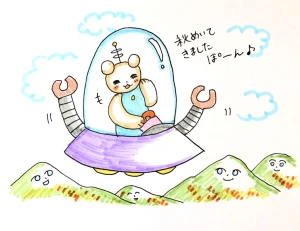 秋めいて
きました
ぽーん♪